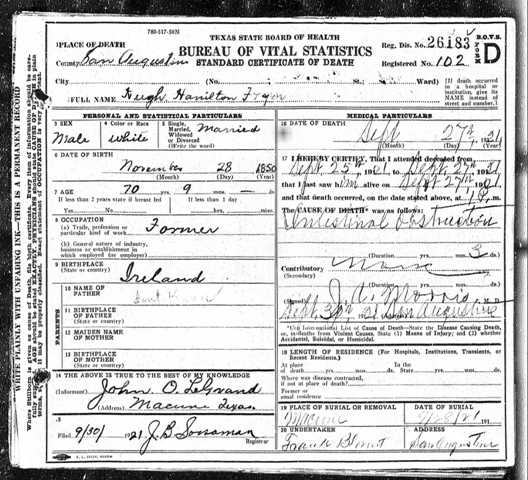 TEXAS STATE BOARD OF HEALTH
BUREAU OF VITAL STATISTICS
STANDARD CERTIFICATE OF DEATH
Reg. Dis. No. 26183
Registered No. 102
B.O.V.S.
FORM D
PLACE OF DEATH
County San Augustine
City
St.;
Ward)
(If death occurred in a hospital or institution, give its NAME instead of street and number.)
FULL NAME Hugh Hamilton
PERSONAL AND STATISTICAL PARTICULARS
3 SEX
Male
4 Color or Race
White
5 Single, Married, Widowed or Divorced (Write the word)
Married
6 DATE OF BIRTH
November 28 1850
(Month) (Day) (Year)
7 AGE
70 9
If less than 2 years state if breast fed
If less than 1 day
8 OCCUPATION
(a) Trade, profession or particular kind of work
Farmer
(b) General nature of industry, business or establishment in which employed (or employer)
9 BIRTHPLACE
(State or country)
Ireland
PARENTS
10 NAME OF FATHER
11 BIRTHPLACE OF FATHER
(State or country)
12 MAIDEN NAME OF MOTHER
13 BIRTHPLACE OF MOTHER
(State or country)
14 THE ABOVE IS TRUE TO THE BEST OF MY KNOWLEDGE
(Informant) John O. LeGrand
(Address) Texas
Filed 9/30 1921 J.B. Sossaman
Registrar
MEDICAL PARTICULARS
16 DATE OF DEATH
Sept 27th, 1921
(Month) (Day) (Year)
17 I HEREBY CERTIFY, That I attended deceased from
Sept 25th, 1921 to Sept 27th, 1921
that I last saw him alive on Sept 27th 1921
and that death occurred, on the date stated above, at
The CAUSE OF DEATH* was as follows:
Intestinal obstruction
(Duration yrs. mos. 3 ds.
Contributory None
(Secondary)
(Duration) yrs. mos. ds.
(Signed) J.A. Morris
San Augustine
*Use International List of Cause of Death—State the Disease Causing Death, or in deaths from Violent Causes, State (1) Means of Injury; and (2) whether Accidental, Suicidal, or Homicidal.
18 LENGTH OF RESIDENCE (For Hospitals, Institutions, Transients, or Recent Residents.)
At place of death yrs. mos. ds.
In the State yrs. mos. ds.
Where was disease contracted, if not at place of death?
Former or usual residence
19 PLACE OF BURIAL OR REMOVAL
DATE OF BURIAL
20 UNDERTAKER
Frank Blount
ADDRESS
San Augustine
WRITE PLAINLY WITH UNFADING INK—THIS IS A PERMANENT RECORD